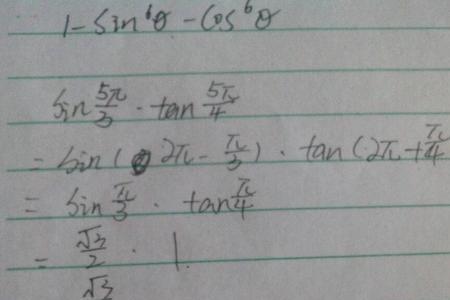 1-sin⁶θ-cos⁶θ
sin 5π/3 · tan 5π/4
= sin( 2π - π/3 ) · tan(2π + π/4
= sin π/3 · tan π/4
= √3/2 · 1
√3